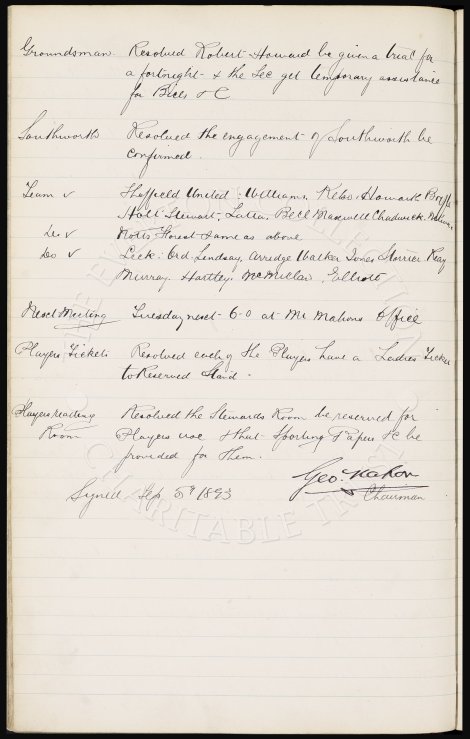 Groundsman Resolved Robert Howard be given a trial for
a fortnight & the Sec get temporary assistance
for Bills &C
Southworth Resolved the engagement of Southworth be
confirmed.
Team v Sheffield United: Williams, Kelso Howarth Boyle
Holt Stewart, Latta, Bell Maxwell Chadwick. Milward
Do v Notts Forest same as above
Do v Leek: Ord. Lindsay, Arridge Walker Jones Storrier Reay
Murray. Hartley. McMillan, Elliott
Next Meeting Tuesday next 6-0 at Mr Mahons Office
Players Tickets Resolved each of the Players have a Ladies Ticket
to Reserved Stand.
Players reading Resolved the Stewards Room be reserved for
Room Players use & that Sporting Papers &c be
provided for them.
Geo. Mahon
Signed Sep 5th 1893 Chairman
CHARITABLE TRUST